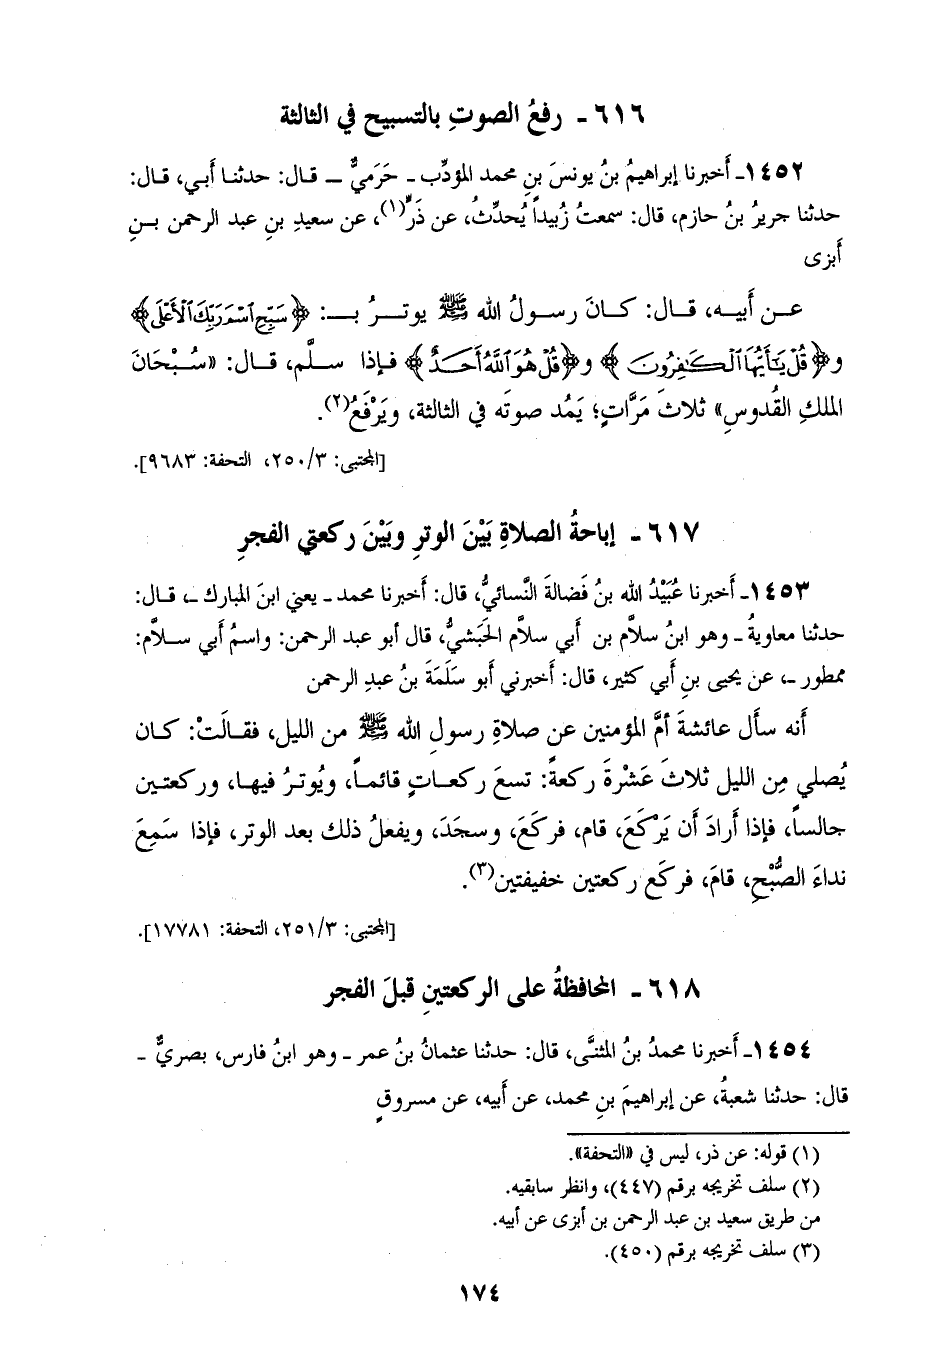 ٦١٦ - رفعُ الصوتِ بالتسبيح في الثالثة
١٤٥٢- أَخبرنا إبراهيمُ بنُ يونسَ بنِ محمد المؤدِّب - حَرَميٌّ - قال: حدثنا أَبي، قال:
حدثنا جريرُ بنُ حازم، قال: سمعتُ زُبيداً يُحدِّثُ، عن ذَرٍّ(١)، عن سعيدِ بنِ عبد الرحمن بنِ
أَبزى
عن أَبيه، قال: كانَ رسولُ الله ﷺ يوتـرُ بـ: ﴿سَبِّحِ ٱسْمَ رَبِّكَ ٱلْأَعْلَى﴾
و﴿قُلْ يَٰٓأَيُّهَا ٱلْكَٰفِرُونَ﴾ و﴿قُلْ هُوَ ٱللَّهُ أَحَدٌ﴾ فإذا سلَّم، قال: «سُبْحَانَ
الملكِ القُدوسِ» ثلاثَ مَرَّاتٍ؛ يَمُد صوتَه في الثالثة، ويَرْفَعُ(٢).
[المجتبى: ٢٥٠/٣، التحفة: ٩٦٨٣].
٦١٧ - إباحةُ الصلاةِ بَيْنَ الوترِ وبَيْنَ ركعتي الفجرِ
١٤٥٣- أَخبرنا عُبَيْدُ الله بنُ فَضالةَ النَّسائيُّ، قال: أَخبرنا محمد - يعني ابنَ المبارك -، قال:
حدثنا معاويةُ - وهو ابنُ سلاَّم بن أَبي سلاَّم الحَبَشيُّ، قال أبو عبد الرحمن: واسمُ أَبي سلاَّم:
ممطور -، عن يحيى بنِ أَبي كثير، قال: أَخبرني أَبو سَلَمَةَ بنُ عبدِ الرحمن
أَنه سأَل عائشةَ أمَّ المؤمنين عن صلاةِ رسولِ الله ﷺ من الليل، فقالَتْ: كان
يُصلي مِن الليل ثلاثَ عَشْرةَ ركعةً: تسعَ ركعاتٍ قائماً، ويُوترُ فيها، وركعتين
جالساً، فإذا أَرادَ أَن يَرْكَعَ، قام، فركَعَ، وسجَدَ، ويفعلُ ذلك بعد الوتر، فإذا سَمِعَ
نداءَ الصُّبْحِ، قامَ، فركَع ركعتين خفيفتين(٣).
[المجتبى: ٢٥١/٣، التحفة: ١٧٧٨١].
٦١٨ - المحافظةُ على الركعتينِ قبلَ الفجر
١٤٥٤- أَخبرنا محمدُ بنُ المثنَّى، قال: حدثنا عثمانُ بنُ عمر - وهو ابنُ فارس، بصريٌّ -
قال: حدثنا شعبةُ، عن إبراهيمَ بنِ محمد، عن أَبيه، عن مسروقٍ
(١) قوله: عن ذر، ليس في «التحفة».
(٢) سلف تخريجه برقم (٤٤٧)، وانظر سابقيه.
من طريق سعيد بن عبد الرحمن بن أبزى عن أبيه.
(٣) سلف تخريجه برقم (٤٥٠).
١٧٤